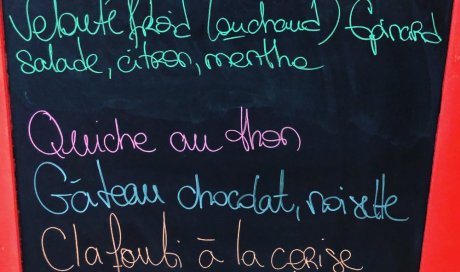 Velouté froid (ou chaud) Epinard
salade, citron, menthe
Quiche au thon
Gâteau chocolat, noisette
Clafouti à la cerise